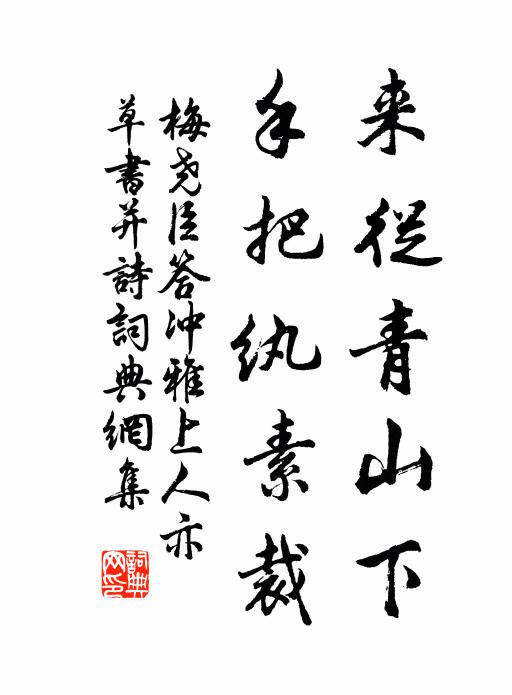 来從青山下
手把紈素裁
梅尧臣答冲雅上人亦
草書并詩詞典網集
詞典網印